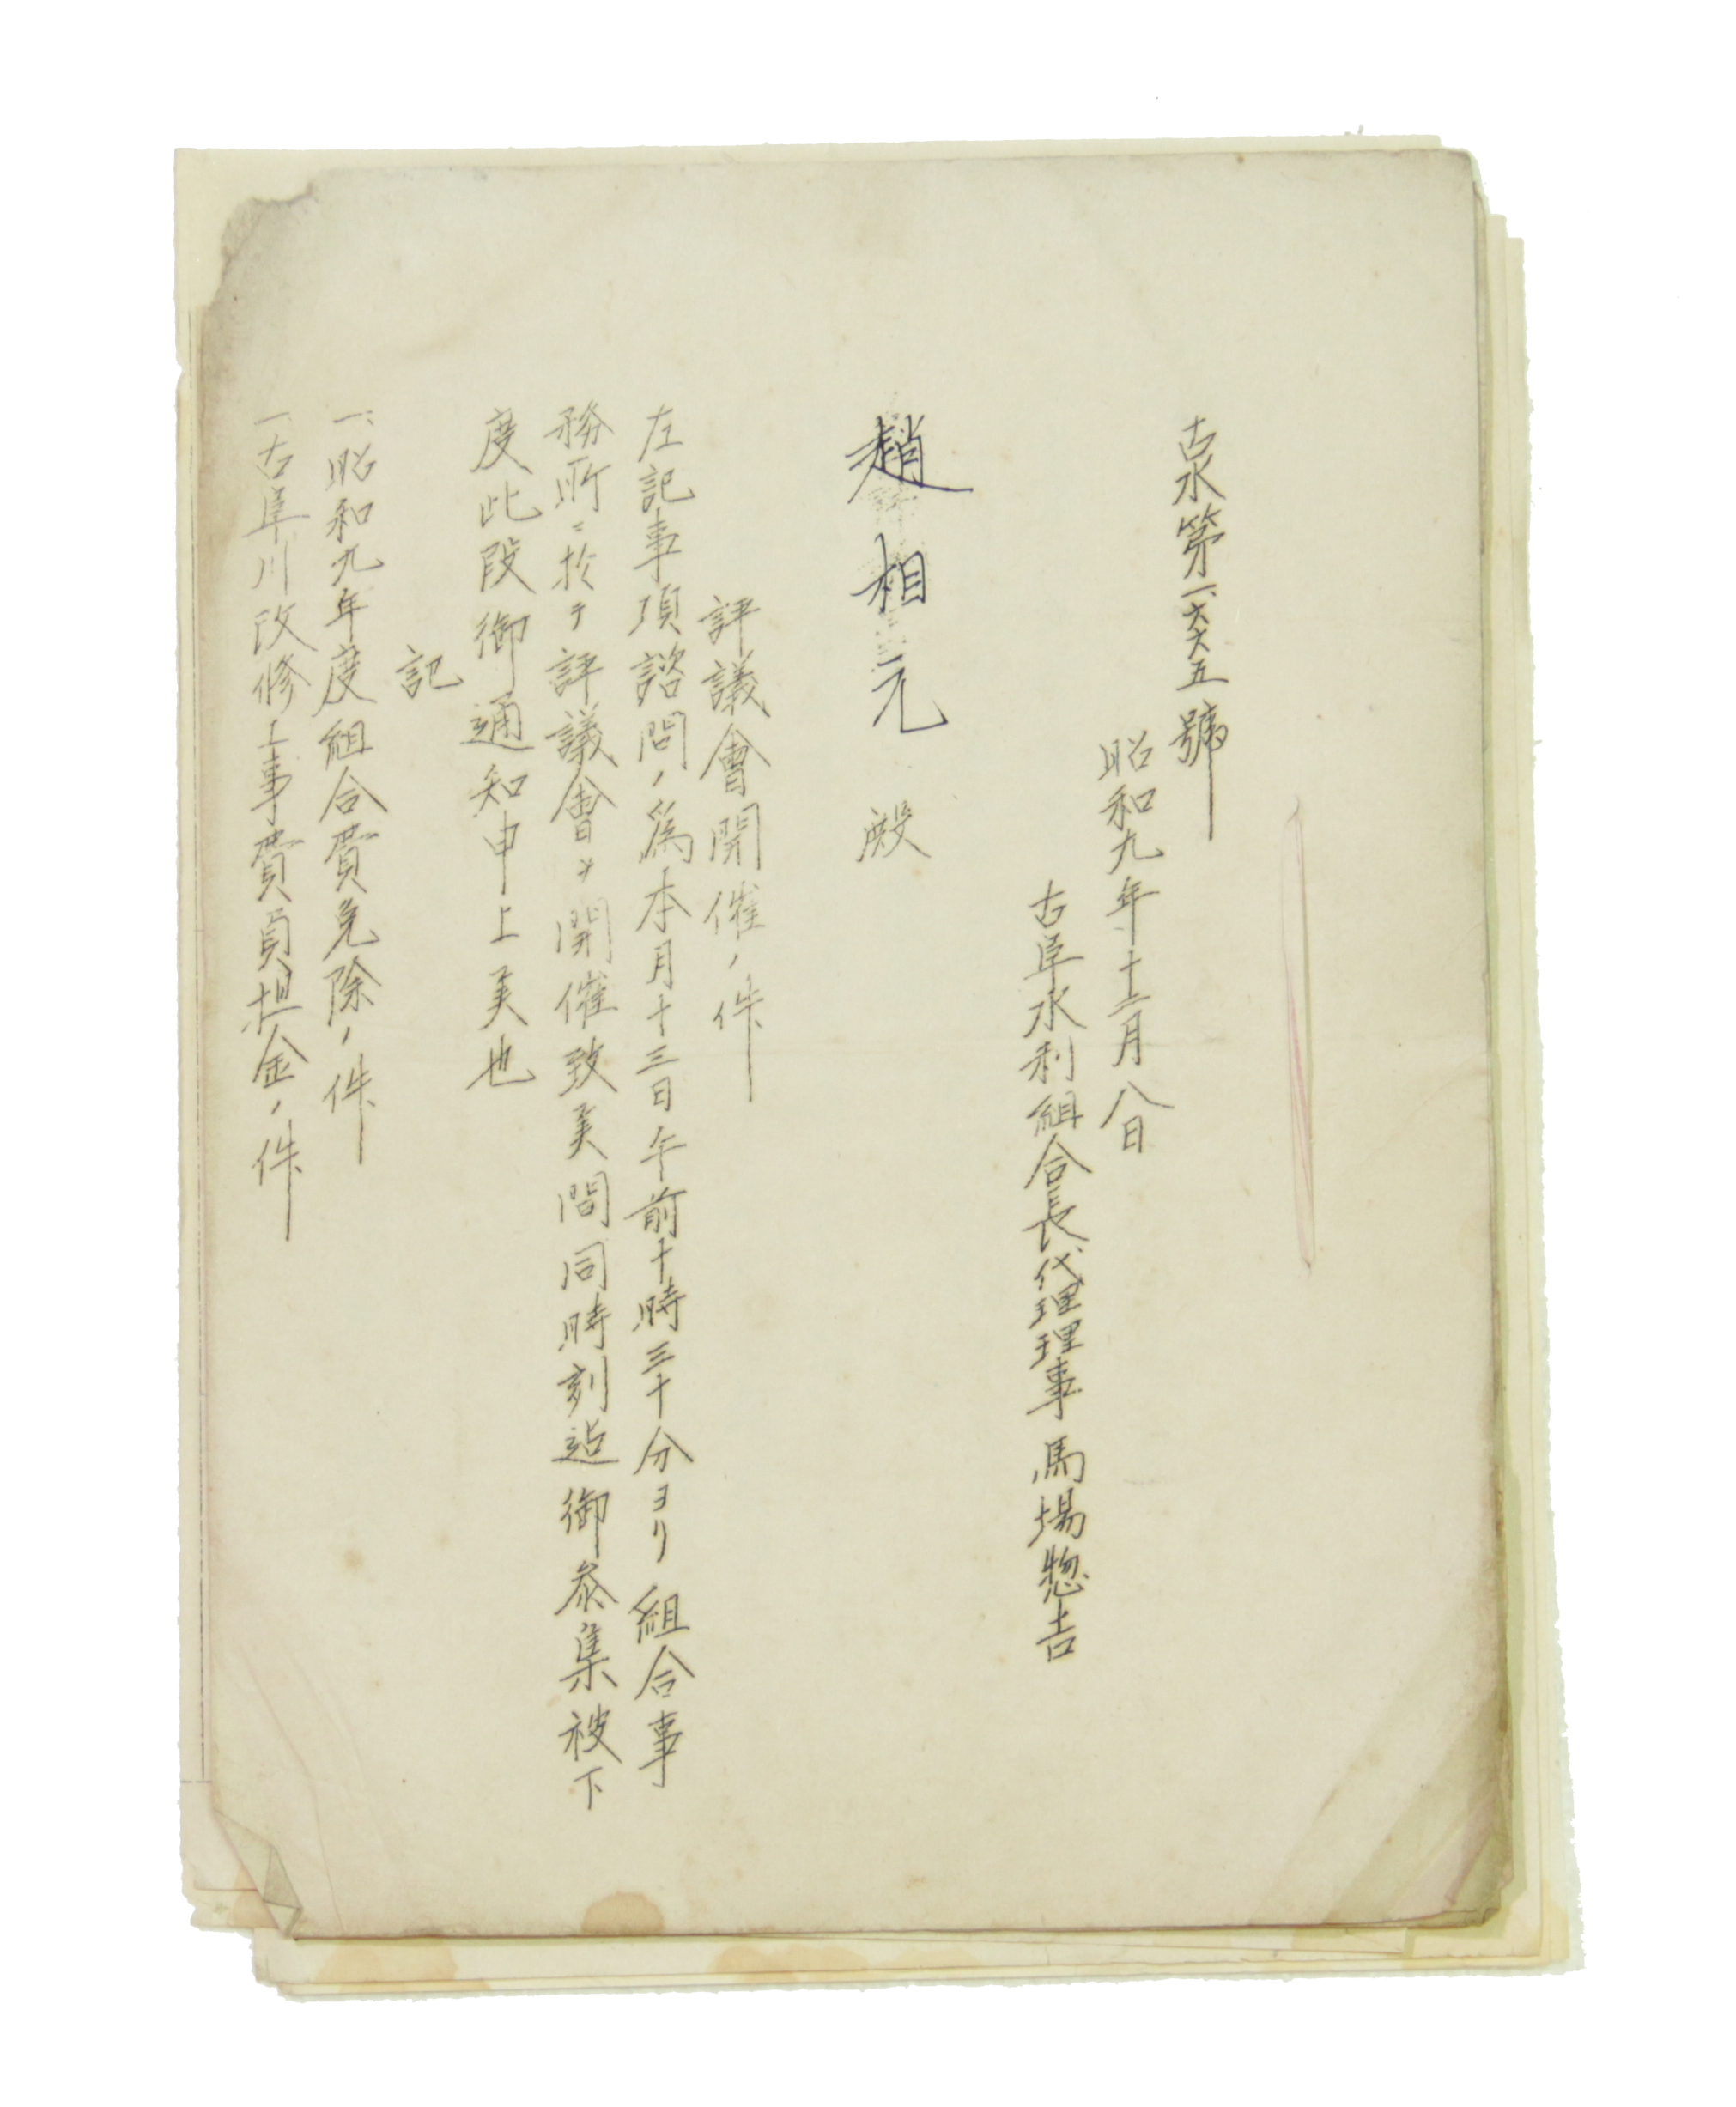 古水第一六六五號
昭和九年十二月八日
古阜水利組合長代理理事 馬場惣吉
趙相元 殿
評議會開催ノ件
左記事項諮問ノ爲本月十三日午前十時三十分ヨリ組合事
務所ニ於テ評議會ヲ開催致候間同時刻迠御参集被下
度此段御通知申上候也
記
一、昭和九年度組合費免除ノ件
一、古阜川改修工事費負担金ノ件